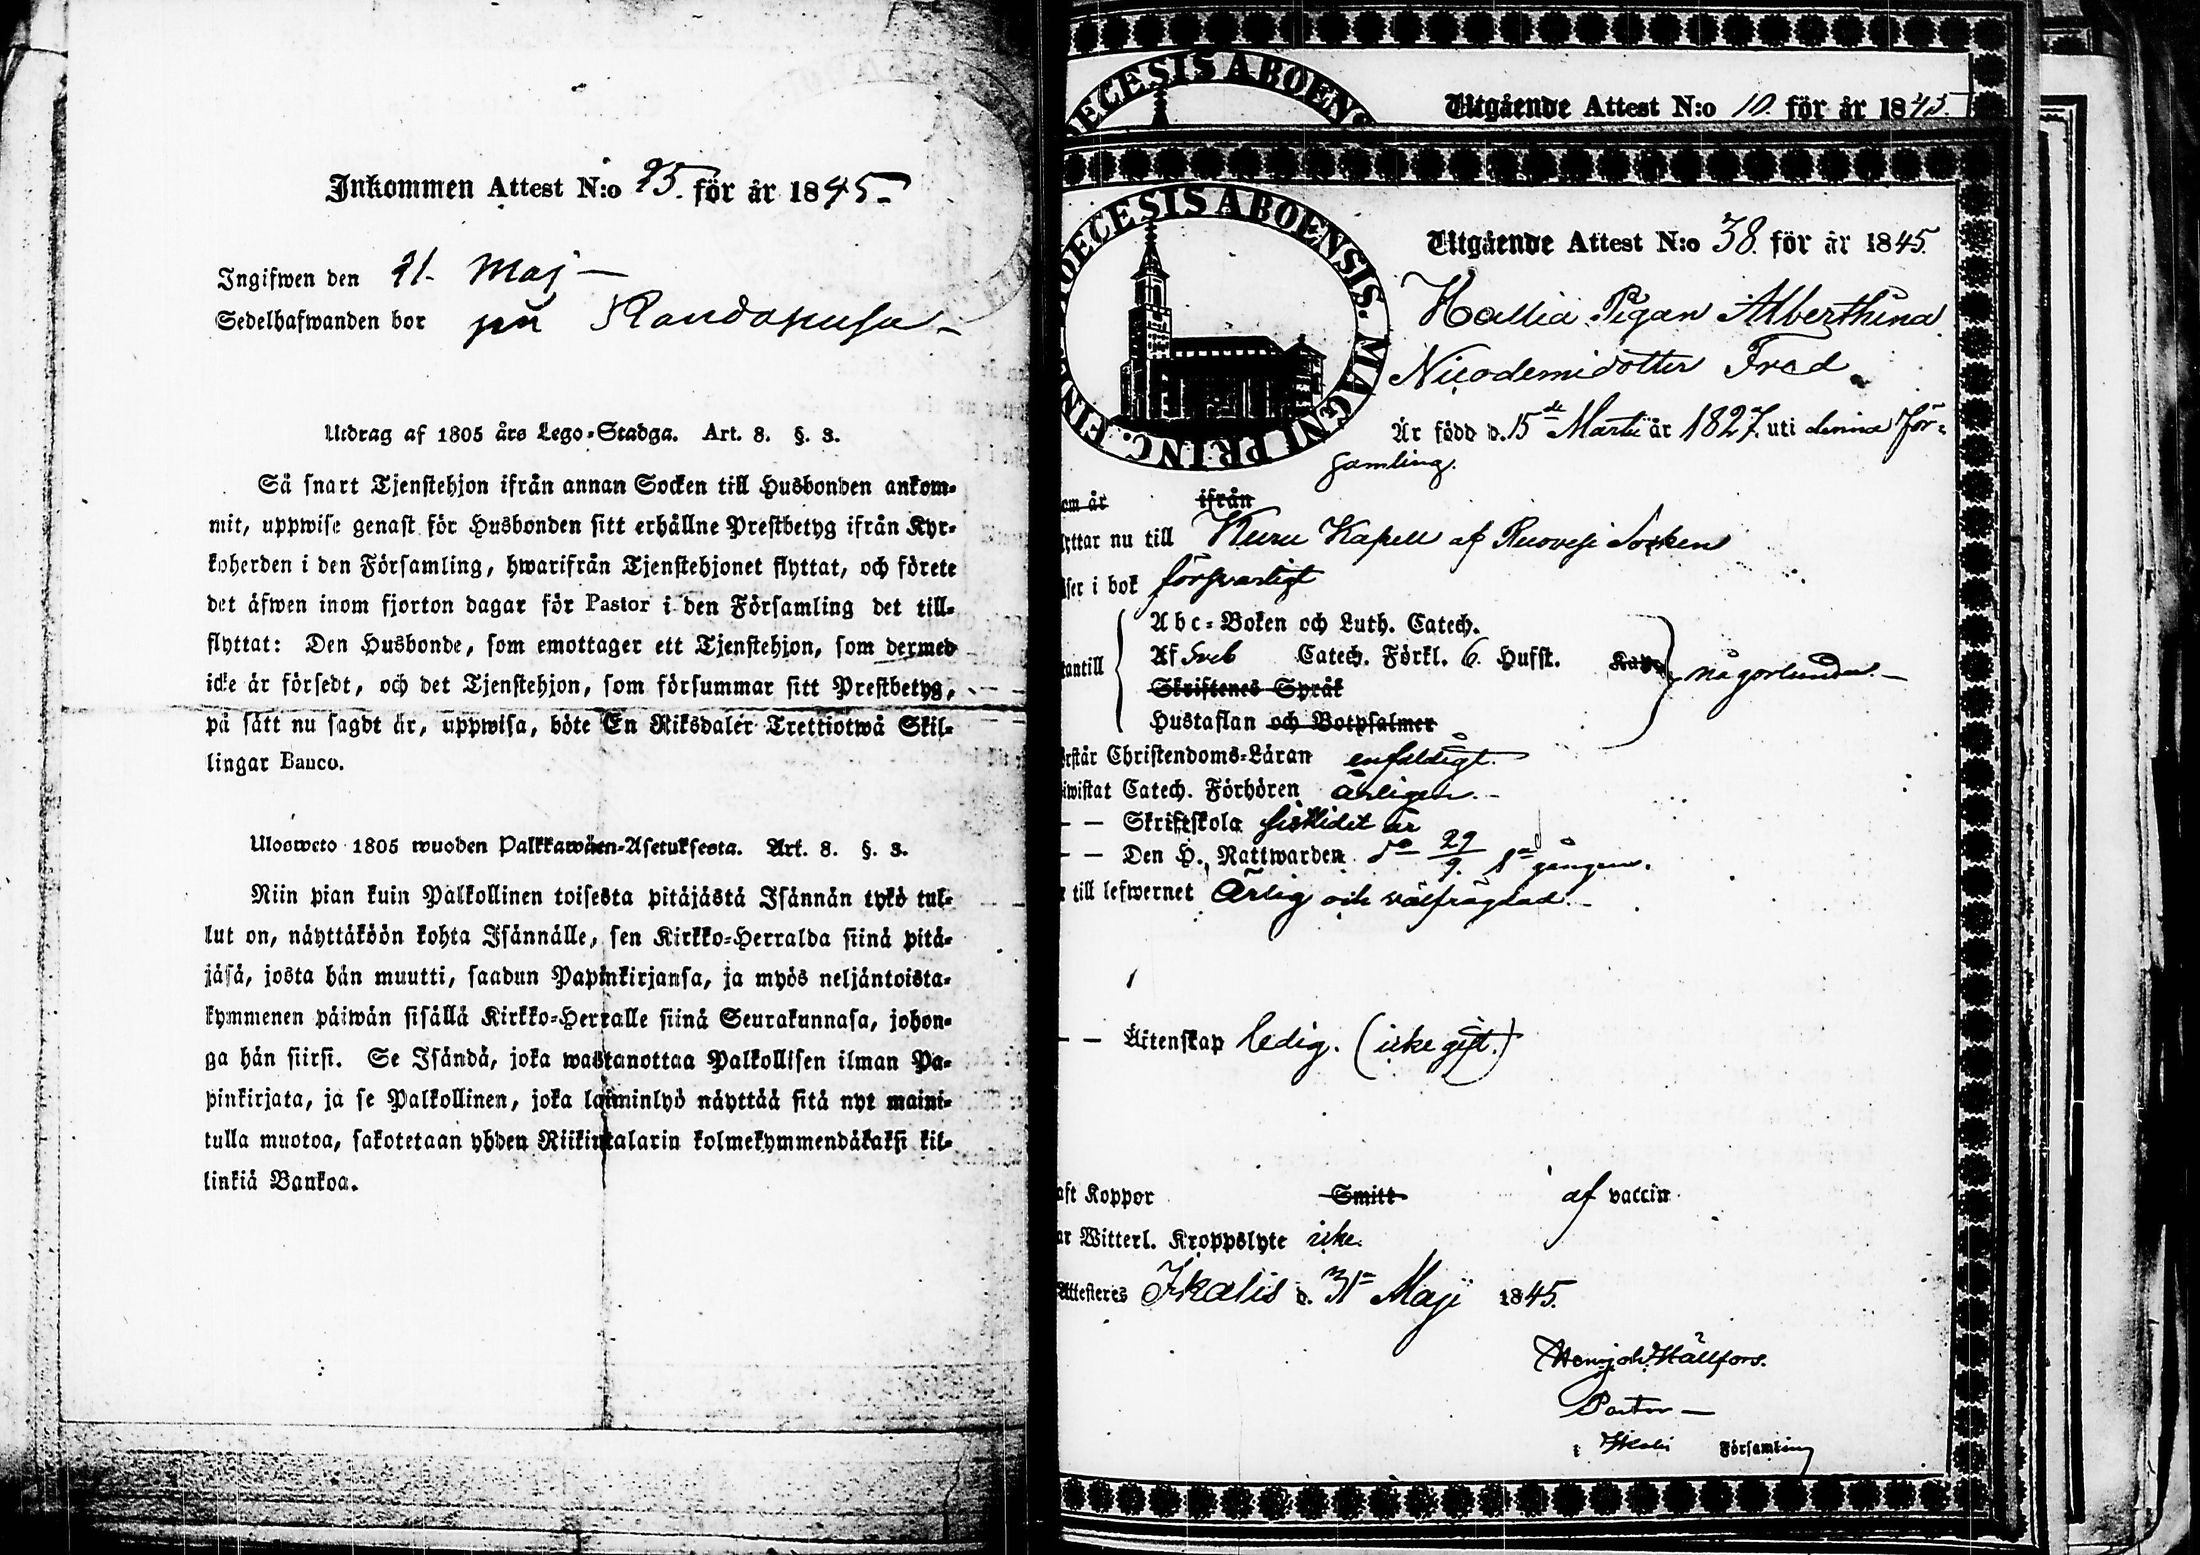 Inkommen Attest N:o 25. för år 1845.
Ingifwen den 21. Maj
Sedelhafwanden bor på
Utdrag af 1805 års Lego-Stadga. Art. 8. §. 3.
Så snart Tjenstehjon ifrån annan Socken till Husbonden ankom-
mit, uppwise genast för Husbonden sitt erhållne Prestbetyg ifrån Kyr-
koherden i den Församling, hwarifrån Tjenstehjonet flyttat, och förete
det äfwen inom fjorton dagar för Pastor i den Församling det till-
flyttat: Den Husbonde, som emottager ett Tjenstehjon, som dermed
icke är försedt, och det Tjenstehjon, som försummar sitt Prestbetyg,
på sätt nu sagdt är, uppwisa, böte En Riksdaler Trettiotwå Skil-
lingar Banco.
Ulosweto 1805 wuoden Palkkawäen-Asetuksesta. Art. 8. §. 3.
Niin pian kuin Palkollinen toisesta pitäjästä Isännän tykö tul-
lut on, näyttäköön kohta Isännälle, sen Kirkko-Herralda siinä pitä-
jäsä, josta hän muutti, saadun Papinkirjansa, ja myös neljäntoista-
kymmenen päiwän sisällä Kirkko-Herralle siinä Seurakunnasa, johon-
ga hän siirsi. Se Isändä, joka wastanottaa Palkollisen ilman Pa-
pinkirjata, ja se Palkollinen, joka laiminlyö näyttää sitä nyt maini-
tulla muotoa, sakotetaan yhden Riikintalarin kolmekymmendäkaksi kil-
linkiä Bankoa.
DIECESIS ABOENS.
Utgående Attest N:o 10. för år 1845.
DIOECESIS ABOENSIS. MAGNI PRINC. FINL.
Utgående Attest N:o 38. för år 1845.
Pigan Alberthina
Nicodemidotter Fred
Är född d. 15de Martii år 1827. uti denna För-
samling.
om år ifrån
yttar nu till Kuru Kapell af Ruovesi Socken
äser i bok försvarligt
Abc-Boken och Luth. Catech.
Af Sveb Catech. Förkl. 6. Hufst. Kap. någorlunda.
utantill
Skriftenes Språk
Hustaflan och Botpsalmer
örstår Christendoms-Läran enfaldigt.
iwistat Catech. Förhören årligen.
— — Skriftskola sistlidet år
— — Den H. Nattwarden do 29/9. 1a gången.
till lefwernet Ärlig och välfrägdad.
— — Äktenskap ledig. (icke gift.)
aft Koppor Smitt af vaccin
ar Witterl. Kroppslyte icke.
Attesteres Ikalis d. 31 Maji 1845.
Hällfors.
Pastor
i Ikalis Församling